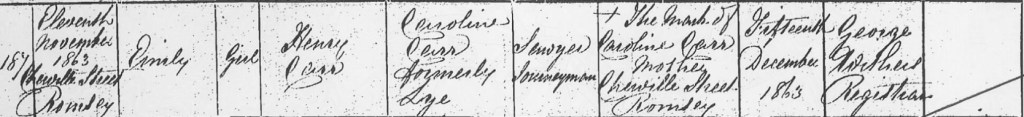 187
Eleventh
November
1863
Chewille Street
Romsey
Emily
Girl
Henry
Carr
Caroline
Carr
formerly
Lye
Sawyer
Journeyman
+ The Mark of
Caroline Carr
Mother
Chewille Street
Romsey
Fifteenth
December
1863
George
Registrar